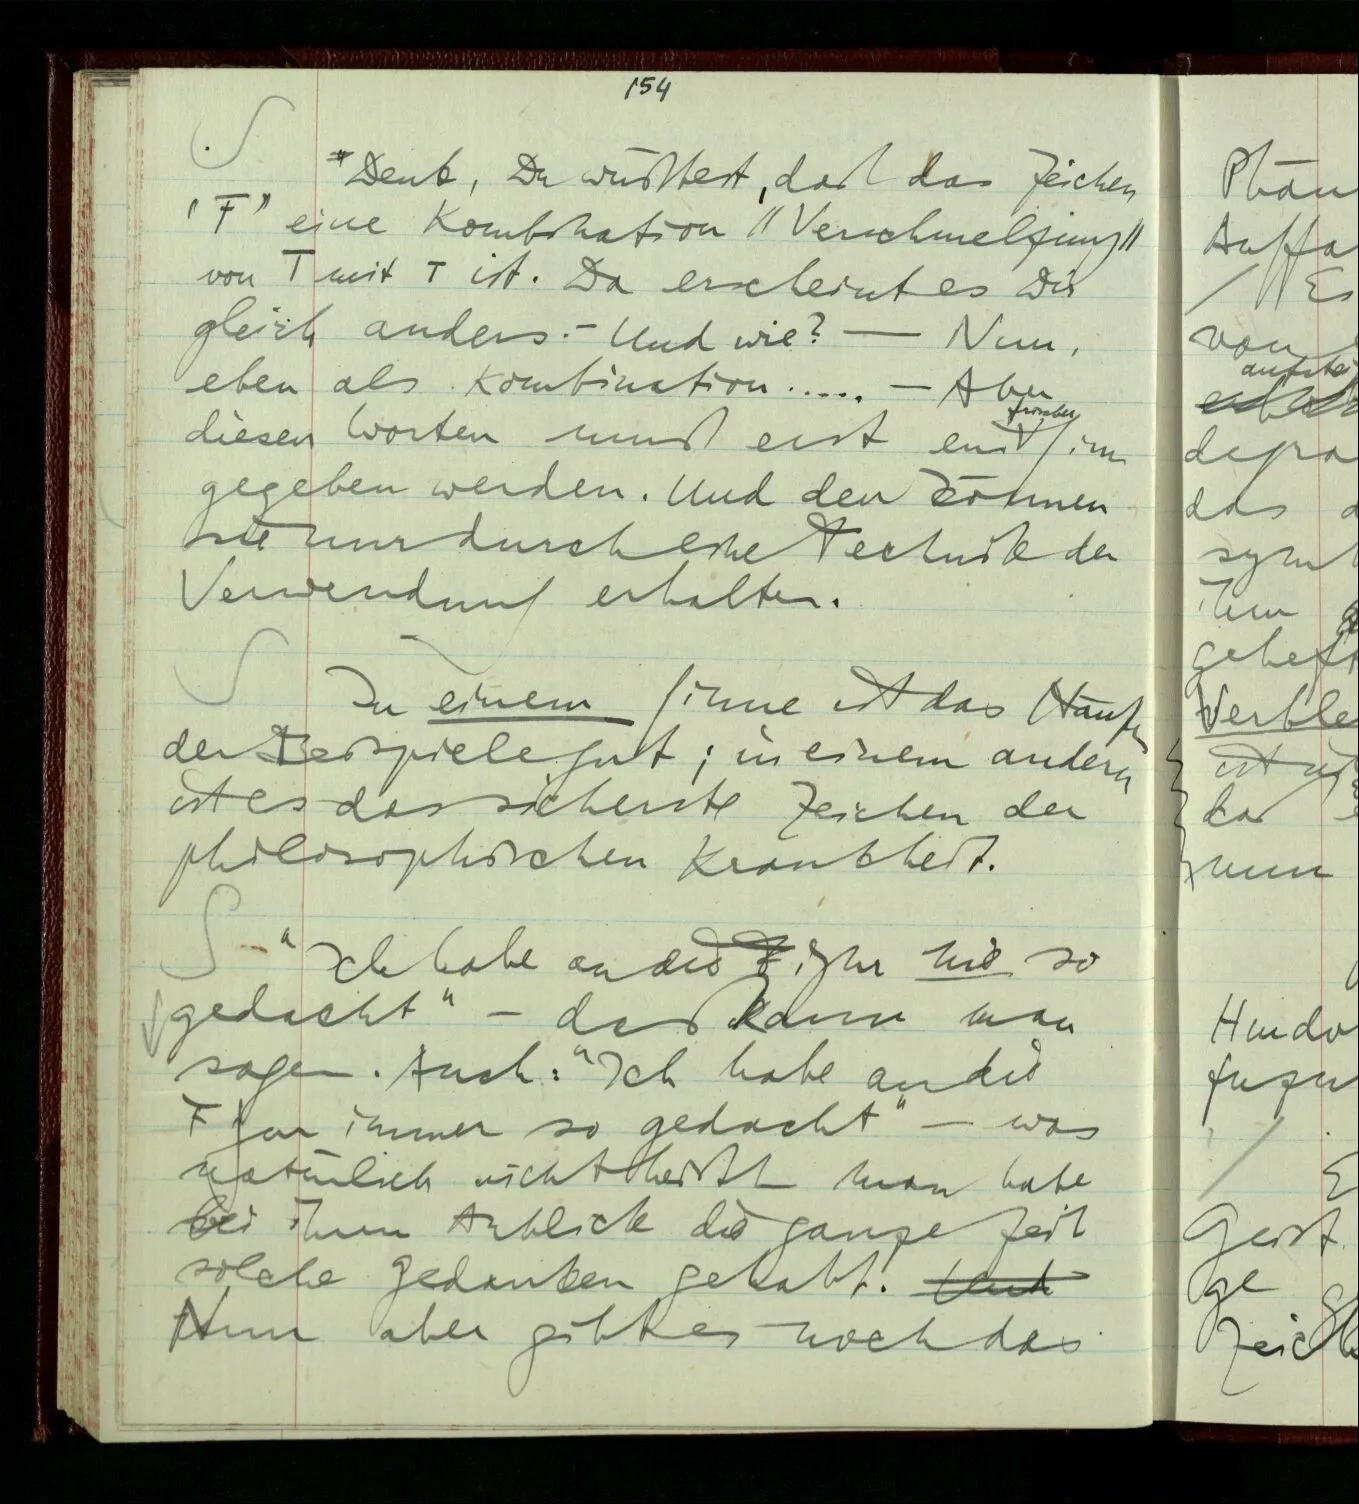 154
"Denk, Du wüßtest, daß das Zeichen
'F' eine Kombination //Verschmelzung//
von Γ mit T ist. Da erscheint es Dir
gleich anders.– Und wie? — Nun,
eben als Kombination ..... – Aber
diesen Worten muß erst ein Sinn
gegeben werden. Und den können
sie nur durch eine Technik der
Verwendung erhalten.
In einem Sinne ist das Häufen
der Beispiele gut; in einem andern
ist es das sicherste Zeichen der
philosophischen Krankheit.
"Ich habe an die Figur nie so
gedacht" – das kann man
sagen. Auch: "Ich habe an die
Figur immer so gedacht" – was
natürlich nicht heißt man habe
bei ihrem Anblick die ganze Zeit
solche Gedanken gehabt. Und
Nun aber gibt es noch das
Phän
Auffa
Es
von
aufstei
depra
das
symb
ihm
geheft
Verble
ist
das
nun
Hindu
fuzu
E
Geist
ge
Zeich